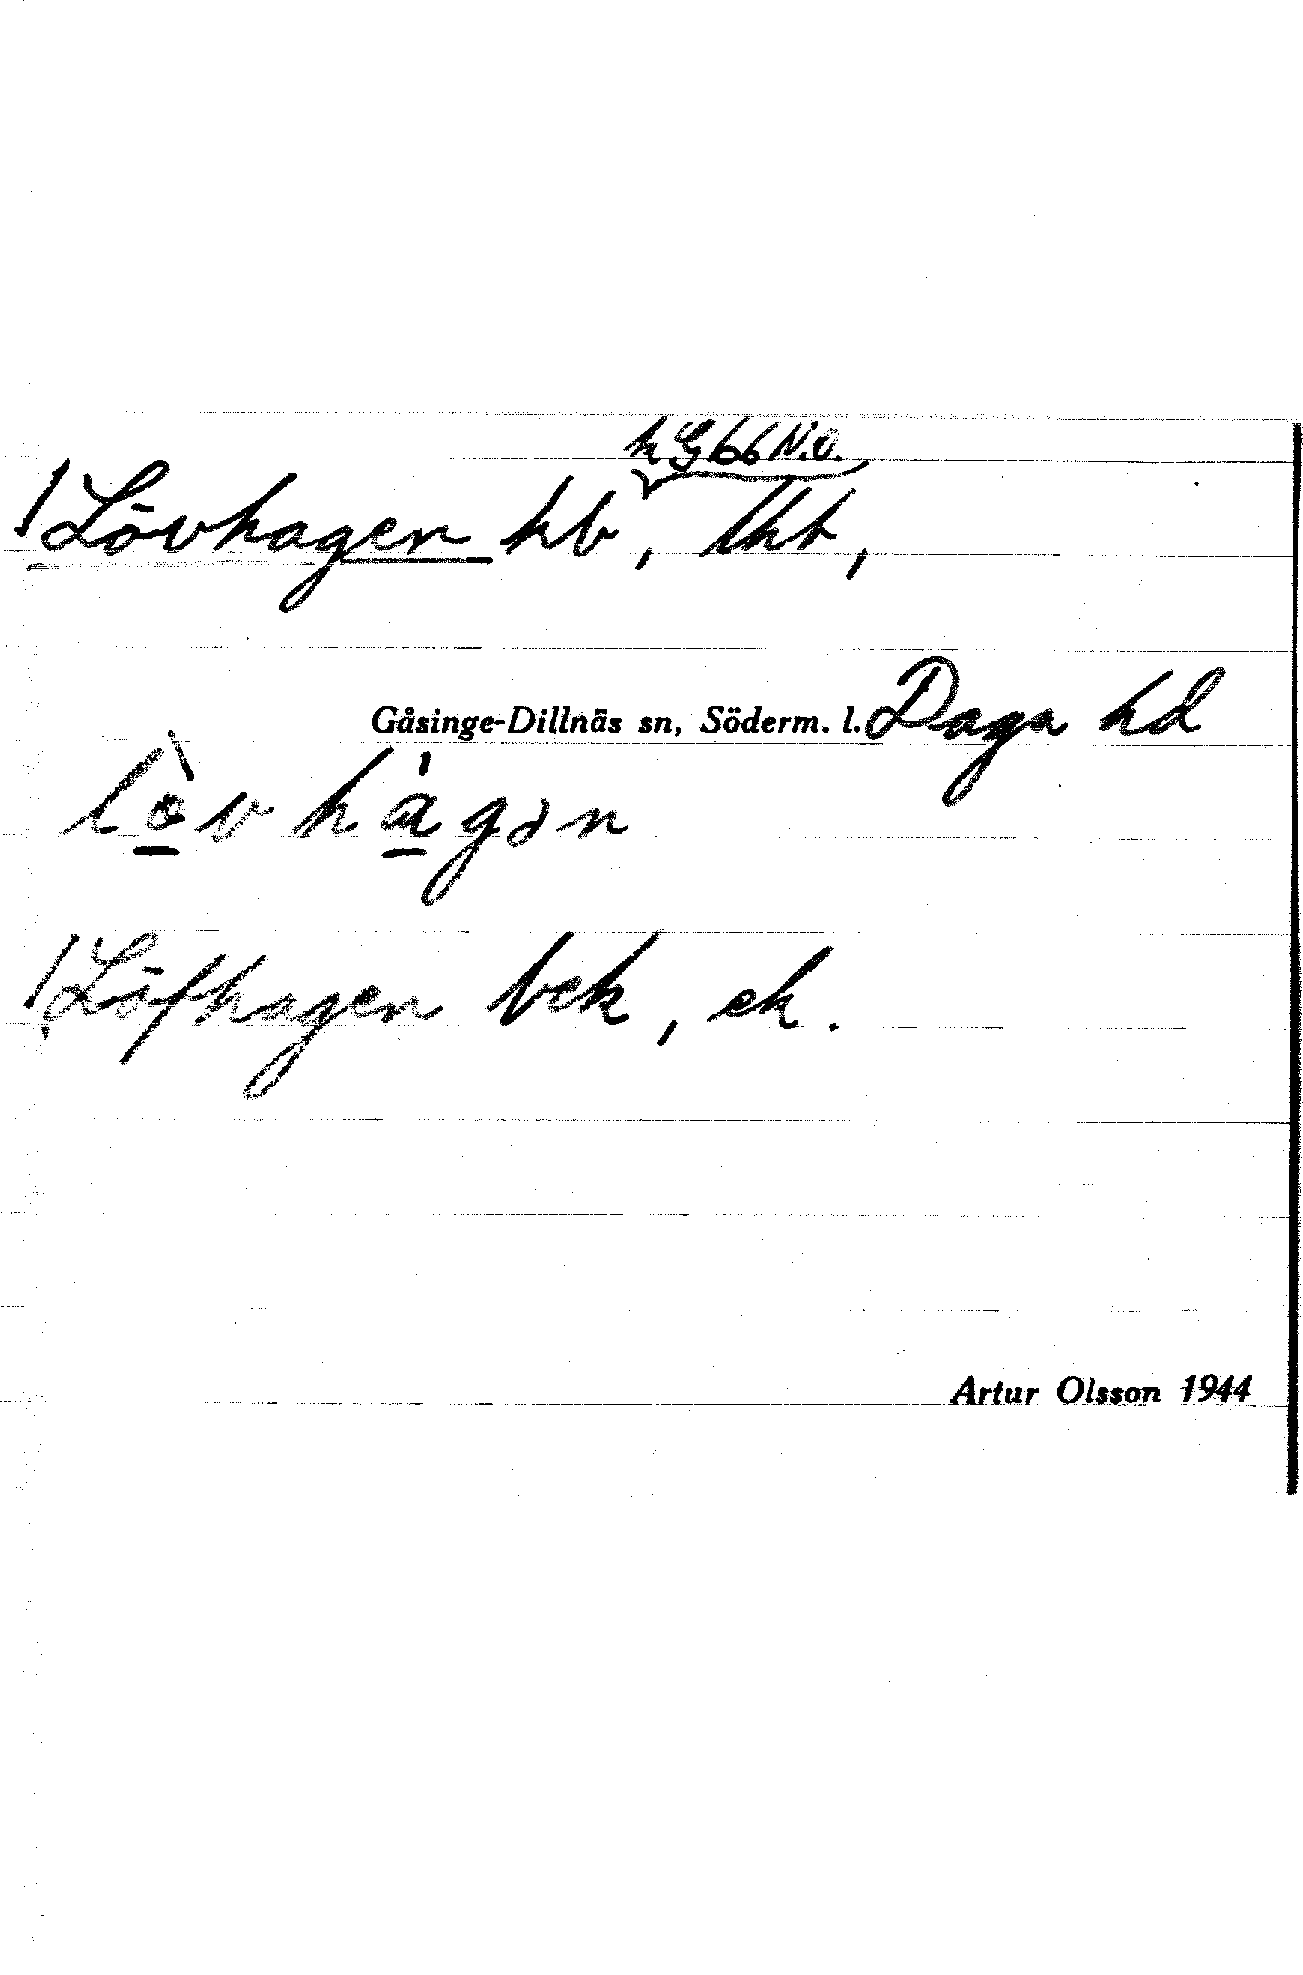 h G 66 N.O.
/Lövhagen hb, lht,
Gåsinge-Dillnäs sn, Söderm. l. Daga hd
lö̀v hàgən
/Löfhagen bek, ek.
Artur Olsson 1944